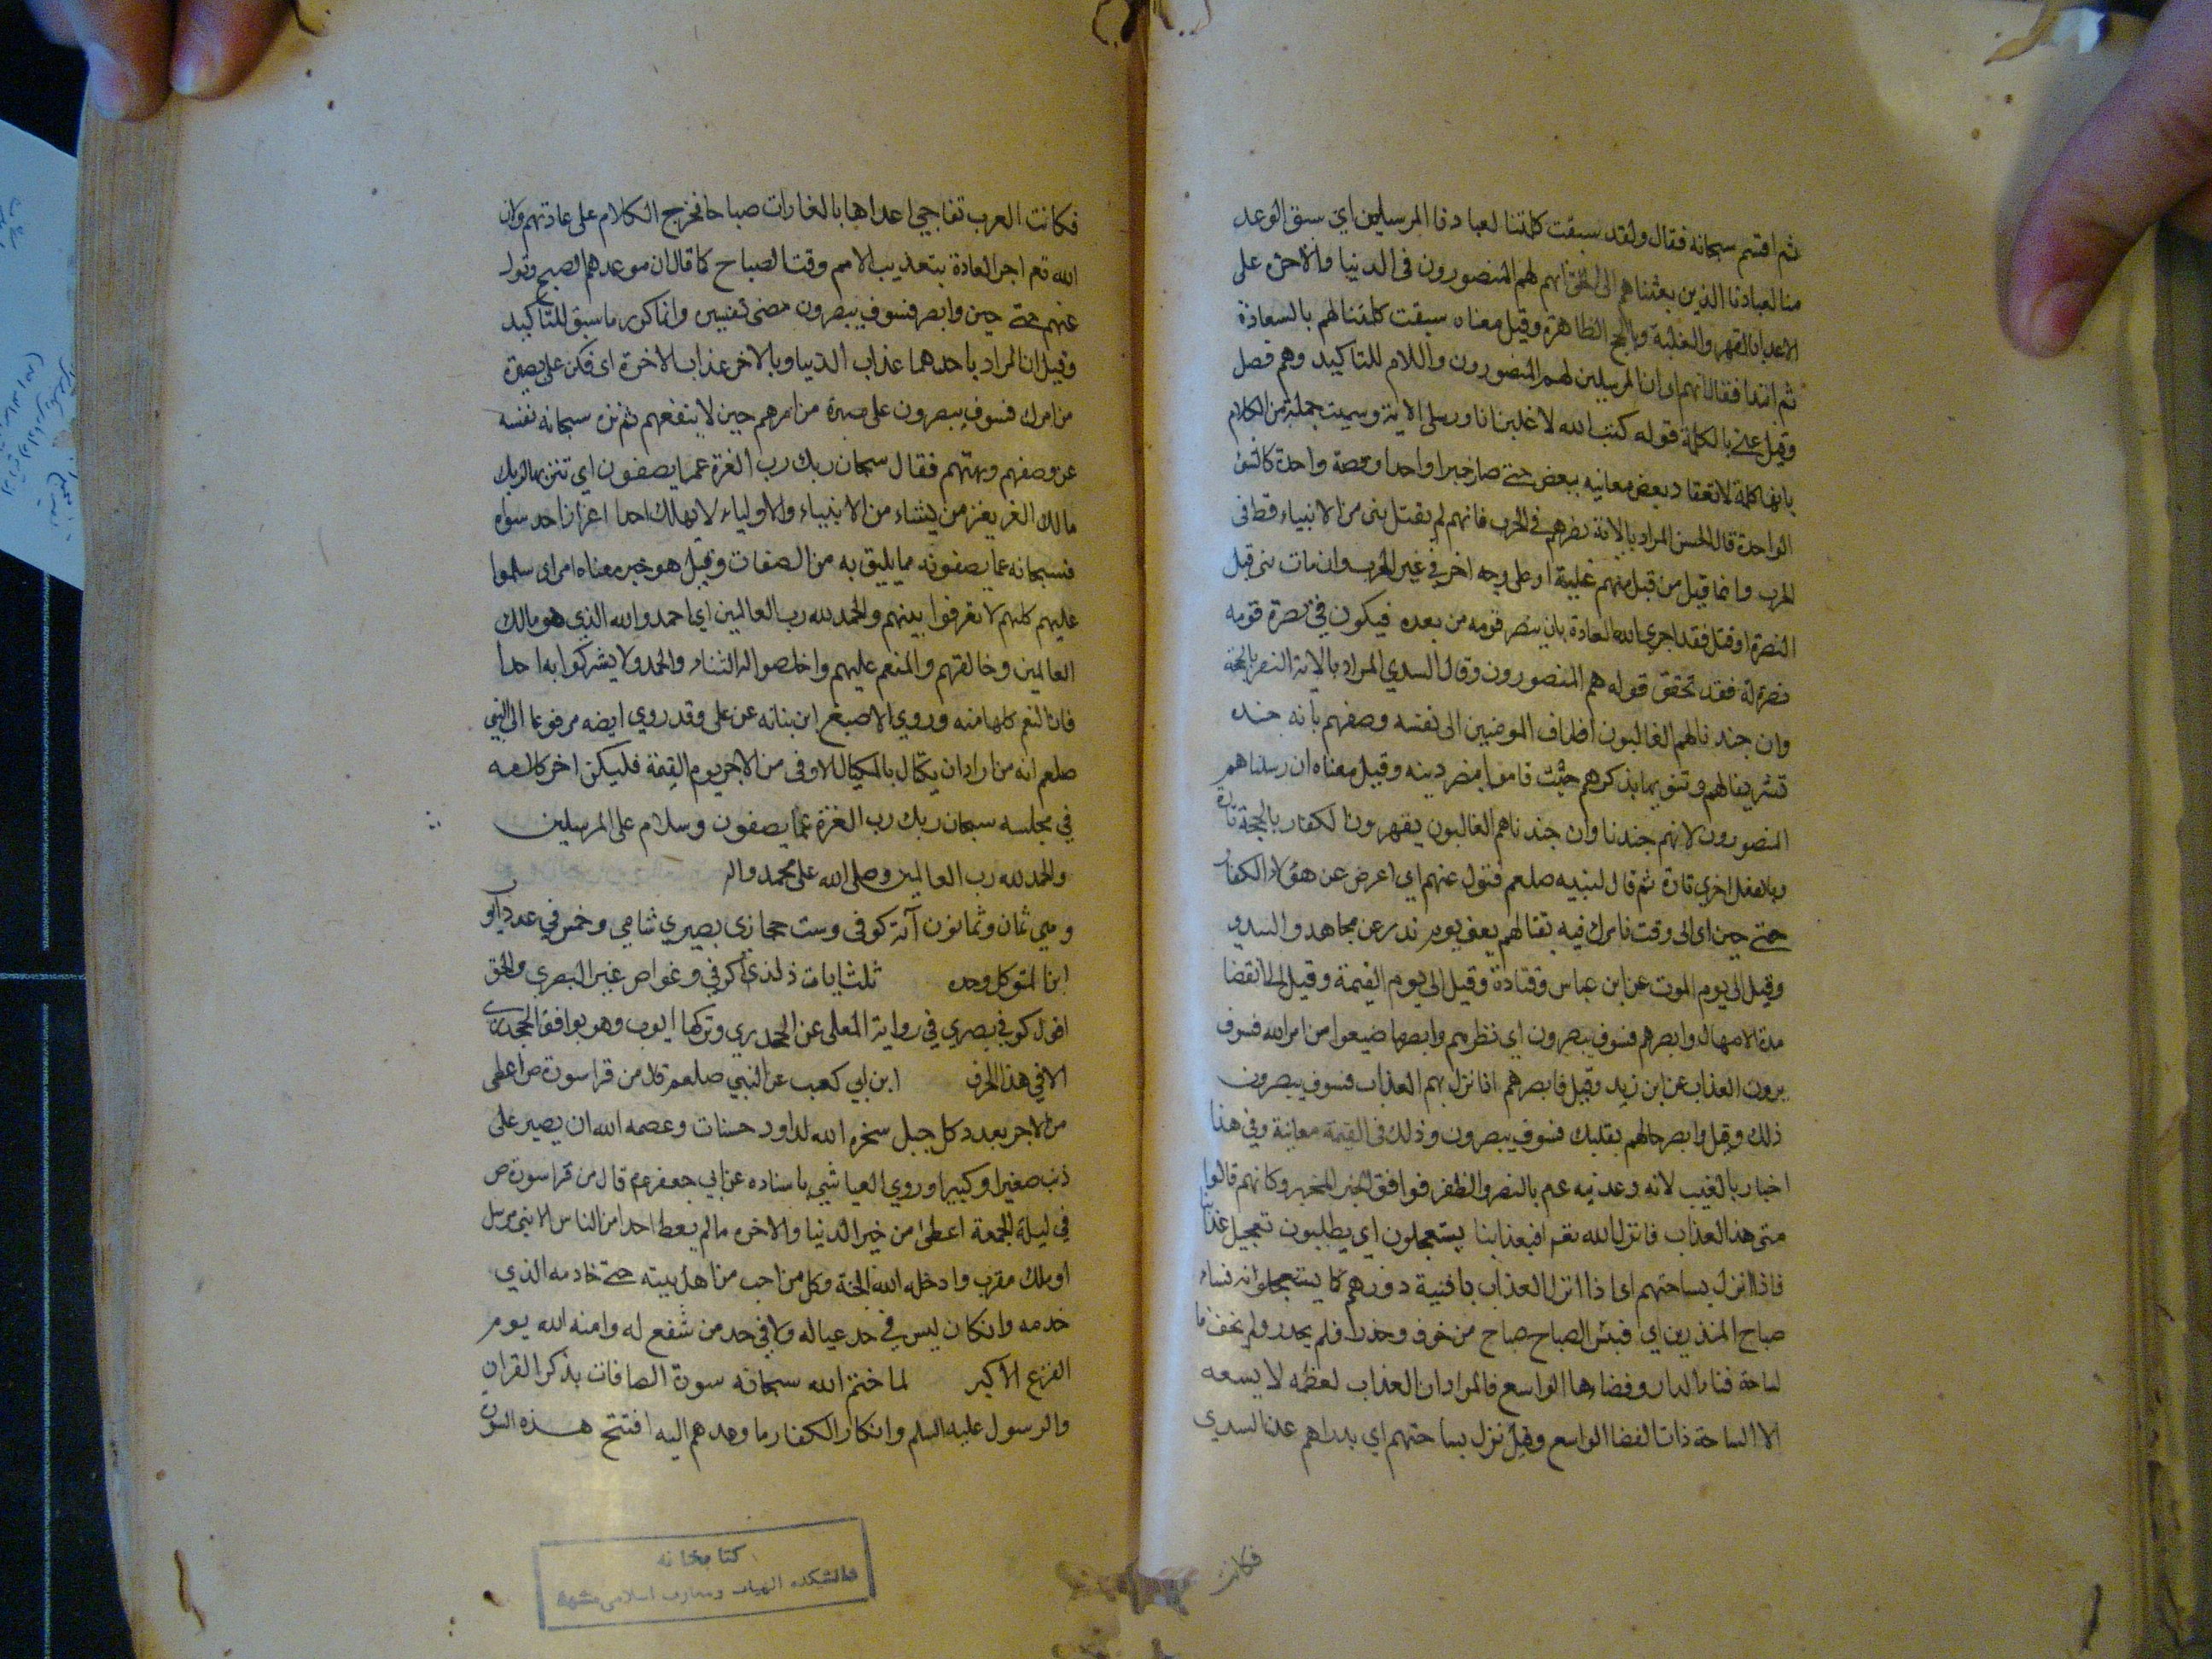 ثم اقسم سبحانه فقال ولقد سبقت كلمتنا لعبادنا المرسلين اي سبق الوعد
منا لعبادنا الذين بعثناهم الى الخلق انهم لهم المنصورون فى الدنيا والاخرة على
الاعداء بالقهر والغلبة وبالحجج الظاهرة وقيل معناه سبقت كلمتنا لهم بالسعادة
ثم ابتدا فقال انهم اي ان المرسلين لهم المنصورون واللام للتاكيد وهم فصل
وقيل عنى بالكلمة قوله كتب الله لاغلبن انا ورسلي الاية وسميت جملة من الكلام
بانها كلمة لانعقاد بعض معانيه ببعض حتى صار خبرا واحدا وقصة واحدة كالشئ
الواحدة قال الحسن المراد بالاية نصرهم في الحرب فانهم لم يقتل نبى من الانبياء قط فى
الحرب وانما قيل من قتل منهم غيلة او على وجه اخر في غير الحرب وان مات نبى قبل
النصرة او قتل فقد اجرى الله العادة بان ينصر قومه من بعده فيكون في نصرة قومه
نصرة له فقد تحقق قوله هم المنصورون وقال السدي المراد بالاية النصر بالحجة
وان جندنا لهم الغالبون اضاف المومنين الى نفسه وصفهم بانه جنده
تشريفا لهم وتنويها بذكرهم حيث قاموا بنصر دينه وقيل معناه ان رسلنا هم
المنصورون لانهم جندنا وان جندنا هم الغالبون يقهرون الكفار بالحجة تارة
وبالفعل اخرى تارة ثم قال لنبيه صلعم فتول عنهم اي اعرض عن هؤلاء الكفار
حتى حين اى الى وقت نامرك فيه بقتالهم يعنى يوم بدر عن مجاهد والسدى
وقيل الى يوم الموت عن ابن عباس وقتادة وقيل الى يوم القيمة وقيل الى انقضا
مدة الامهال وابصرهم فسوف يبصرون اي نظرهم وابصر ما ضيعوا من امر الله فسوف
يرون العذاب عن ابن زيد وقيل فابصرهم اذا نزل بهم العذاب فسوف يبصرون
ذلك وقيل وابصر حالهم بقلبك فسوف يبصرون وذلك فى القيمة معاينة وفي هذا
اخبار بالغيب لانه وعد نبيه عم بالنصر والظفر فوافق الخبر المخبر وكانهم قالوا
متى هذا العذاب فانزل الله تعم افبعذابنا يستعجلون اي يطلبون تعجيل عذابنا
فاذا نزل بساحتهم اي اذا انزل العذاب بافنية دورهم كما يستعجلوا نه فساء
صباح المنذرين اي فبئس الصباح صباح من خوف وحذر فلم يحذر ولم يخف ما
لساحة فناء الدار وفضاؤها الواسع فالمراد ان العذاب لعظمه لا يسعه
الا الساحة ذات الفضا الواسع وقيل نزل بساحتهم اي بدارهم عن السدي
فكانت
فكانت العرب تفاجئ اعداها بالغارات صباحا فخرج الكلام على عادتهم ولان
الله تعم اجرى العادة بتعذيب الامم وقت الصباح كما قال ان موعدهم الصبح وتول
عنهم حتى حين وابصر فسوف يبصرون مضى تفسيره وانما كرر ما سبق للتاكيد
وقيل ان المراد باحدهما عذاب الدنيا وبالاخر عذاب الاخرة اى فكن على بصيرة
من امرك فسوف يبصرون على بصيرة من امرهم حين لا ينفعهم ثم نزه سبحانه نفسه
عن وصفهم وبهتهم فقال سبحان ربك رب العزة عما يصفون اي تنزيها لربك
مالك العز يعز من يشاء من الانبياء والاولياء لا يملك احدا اعزاز احد سواه
فسبحانه عما يصفونه مما يليق به من الصفات وقيل هو خبر معناه امر اى سلموا
عليهم كلهم لا تفرقوا بينهم والحمد لله رب العالمين اي احمدوا الله الذي هو مالك
العالمين وخالقهم والمنعم عليهم واخلصوا له الثناء والحمد ولا يشركوا به احدا
فان النعم كلها منه وروي الاصبغ ابن بناته عن على وقد روي ايضه مرفوعا الى النبى
صلعم انه من اراد ان يكتال بالمكيال الاوفى من الاجر يوم القيمة فليكن اخر كلامه
في مجلسه سبحان ربك رب العزة عما يصفون وسلام على المرسلين
والحمد لله رب العالمين وصلى الله على محمد واله
وهي ثمان وثمانون آية كوفى وست حجازى بصيري شامي وخمس في عدد ايو
ابن المتوكل وحده ثلث ايات ذلذي كوفي وغواص غير البصري والحق
اقول كوفي بصري في رواية المعلى عن الجحدري وتركها ايوب وهو يوافق الجحدرى
الا في هذا الحرف ابن ابي كعب عن النبي صلعم قال من قرا سورة ص اعطى
من الاجر بعدد كل جبل سخره الله لداود حسنات وعصمه الله ان يصير على
ذنب صغيرا وكبيرا وروي العياشي باسناده عن ابي جعفر عم قال من قرا سورة ص
في ليلة الجمعة اعطى من خير الدنيا والاخره ما لم يعط احد من الناس الا نبى مرسل
او ملك مقرب وادخله الله الجنة وكل من احب من اهل بيته حتى خادمه الذي
خدمه وان كان ليس في حد عياله ولا في حد من شفع له وامنه الله يوم
الفزع الاكبر لما ختم الله سبحانه سورة الصافات بذكر القران
والرسول عليه السلم وانكار الكفار ما وعدهم اليه افتتح هذه السورة
كتابخانه
دانشكده الهيات ومعارف اسلامى مشهد